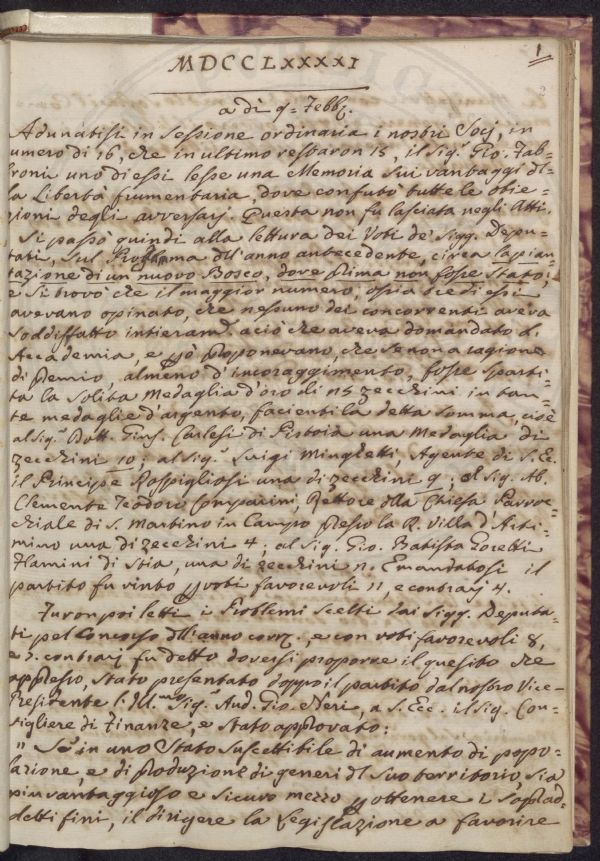 1
MDCCLXXXXI
a dì 9. Febbr.
Adunatisi in Sessione ordinaria i nostri Socj, in
numero di 16, che in ultimo restaron 15, il Sig.r Gio. Fab-
broni uno di essi lesse una Memoria sui vantaggi del-
la Libertà frumentaria, dove confutò tutte le obie-
zioni degli avversarj. Questa non fu lasciata negli Atti.
Si passò quindi alla lettura dei Voti de' Sigg. Depu-
tati, sul Problema dell'anno antecedente, circa la pian-
tazione di un nuovo Bosco, dove prima non fosse stato;
e si trovò che il maggior numero, ossia tre di essi
avevano opinato, che nessuno dei concorrenti aveva
soddisfatto intieram.e a ciò che aveva domandato l'
Accademia, e pciò proponevano, che se non a ragione
di Premio, almeno d'incoraggimento, fosse sparti-
ta la solita Medaglia d'oro di 25 zecchini in tan-
te medaglie d'argento, facienti la detta somma, cioè
al Sig.r Dott. Gius. Carlesi di Pistoia una Medaglia di
zecchini 10; al Sig.r Luigi Minghetti, Agente di S. Ec.
il Principe Rospigliosi una di zecchini 9; al Sig. Ab.
Clemente Teodoro Comparini, Rettore della Chiesa Parroc-
chiale di S. Martino in Campo presso la R. Villa d'Arti-
mino una di zecchini 4; al Sig. Gio. Batista Goretti
Flamini di Stia, una di zecchini 2. E mandatosi il
partito fu vinto p voti favorevoli 11, e contrarj 4.
Furon poi letti i Problemi scelti dai Sigg. Deputa-
ti pel Concorso dell'anno corr.e, e con voti favorevoli 8,
e 7. contrarj fu detto doversi proporre il quesito che
appresso, stato presentato doppo il partito dal nostro Vice-
Presidente l'Ill.mo Sig.r Aud. Gio. Neri, a S. Ecc. il Sig. Con-
sigliere di Finanze, e stato approvato:
" Se in uno Stato suscettibile di aumento di popo-
lazione, e di produzione di generi del suo territorio, sia
più vantaggioso e sicuro mezzo p ottenere i soprad-
detti fini, il dirigere la Legislazione a favorire